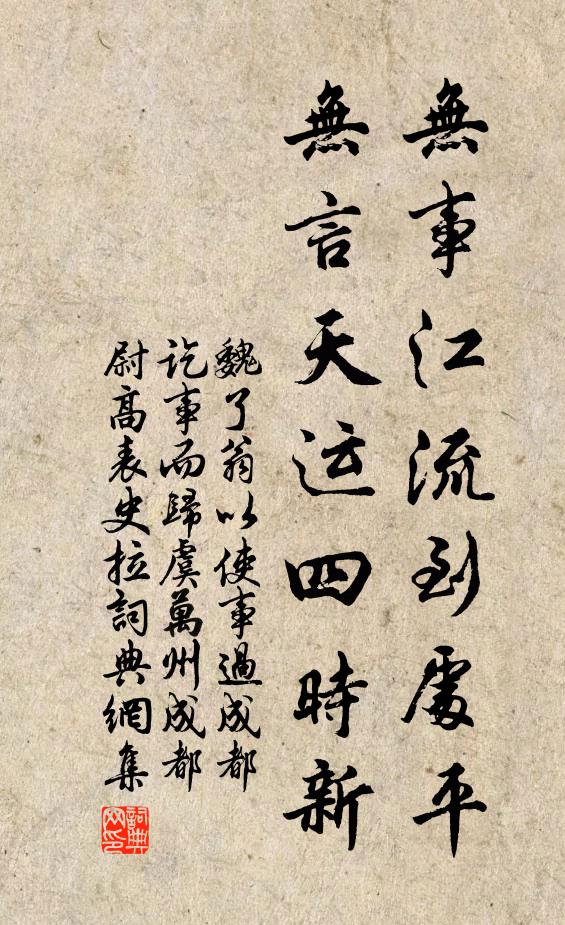 無事江流到處平
無言天运四時新
魏了翁以使事過成都
訖事而歸虞萬州成都
尉高表史拉詞典網集
詞典
网印